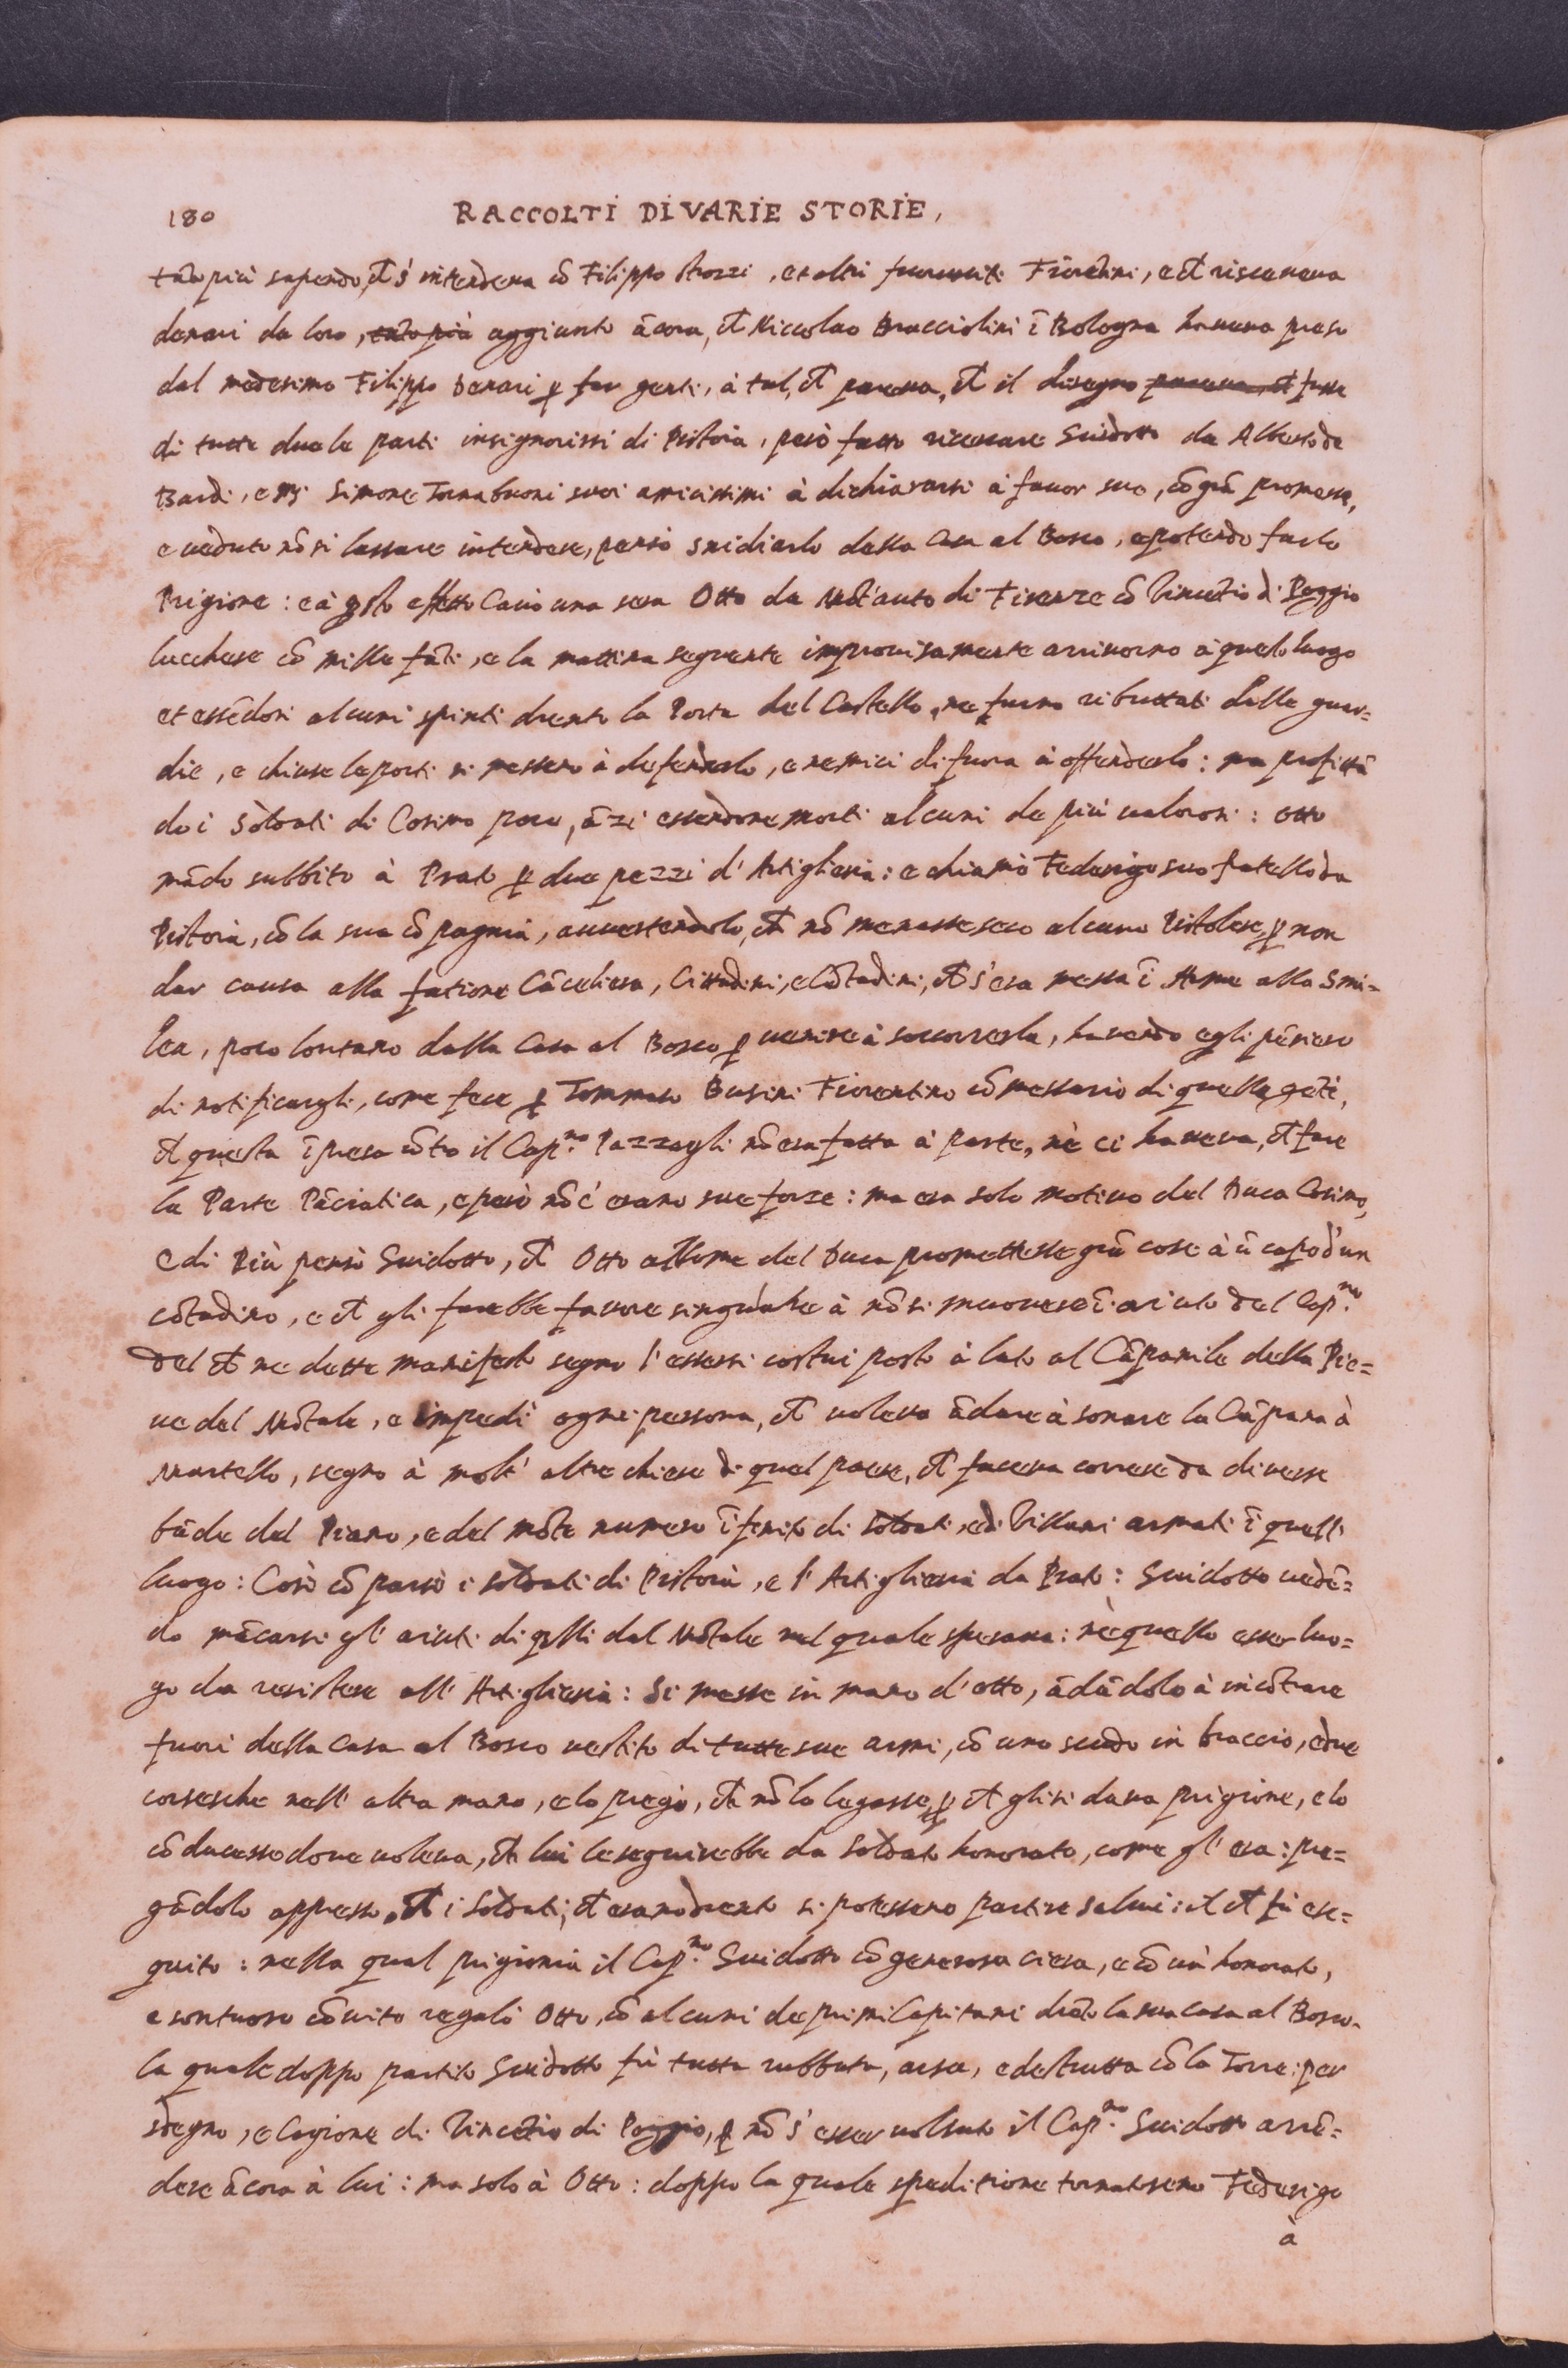 180 RACCOLTI DI VARIE STORIE,
tãto più sapendo, ch̃ s'intendeva cõ Filippo Strozzi, et altri fuorusciti Fiorẽtini, e ch̃ riscoteva
denari da loro, tãto più aggiunto ãcora, ch̃ Niccolao Bracciolini ĩ Bologna haveva preso
dal medesimo Filippo Denari ꝑ far genti, à tal, ch̃ pareva, ch̃ il disegno pareva, ch̃ fusse
di tutte due le parti insignorirsi di Pistoia, però fatto ricercare Guidotto da Alberto de
Bardi, e Simone Tornabuoni suoi amicissimi à dichiararsi à favor suo, cõ grã promesse,
e veduto nõ si lassare intendere, pensò snidiarlo dalla Casa al Bosco, e potendo farlo
Prigione: e à q̃sto effetto Cavò una sera Otto da Mõt'auto di Firenze cõ Vincẽtio di Poggio
lucchese cõ mille fãti, e la mattina seguente improvisamente arrivorno à quelo luogo
et essẽdosi alcuni spinti drento la Porta del Castello, ne furno ributtati dalle guar=
die, e chiuse le porti si messero à defenderlo, e nemici di fuora à offenderlo: ma profittã
do i soldati di Cosimo poco, ãzi essendone morti alcuni de più valorosi: Otto
mãdò subbito à Prato ꝑ due pezzi d'Artiglieria: e chiamò Federigo suo fratello da
Pistoia, cõ la sua cõpagnia, avvertendolo, ch̃ nõ menasse seco alcuno Pistolese, ꝑ non
dar causa alla fatione Cãceliera, Cittadini, e Cõtadini, ch̃ s'era messa ĩ Arme alla Smi=
lea, poco lontano dalla Casa al Bosco ꝑ venire à soccorrerla, havendo egli pẽsiero
di notificargli, come fece ꝑ Tommaso Busini Fiorentino cõmessario di quelle gẽti,
ch̃ questa ĩpresa cõtro il Cap.no Pazzagli nõ era fatta à parte, nè ci haveva, ch̃ fare
la Parte Pãciatica, e però nõ c'erano sue forze: ma era solo motivo del Duca Cosimo,
e di Più pensò Guidotto, ch̃ Otto al nome del Duca promettesse grã cose à ũ capo d'un
cõtadino, e ch̃ gli farebbe favore singulare à nõ si muovere ĩ aiuto del Cap.no
Del ch̃ ne dette manifesto segno l'essersi costui posto à lato al Cãpanile della Pie=
ve del Mõtale, e impedì ogni persona, ch̃ voleva ãdare à sonare la Cãpana à
Martello, segno à molt' altre chiese di quel paese, ch̃ faceva correre da diverse
bãde del Piano, e del mõte numero ĩfenito di soldati, e di Villani armati ĩ quel
luogo: Così cõparsò i soldati di Pistoia, e l'Artiglieria da Prato: Guidotto vedẽ=
do mãcarsi gl' aiuti di q̃lli dal Mõtale nel quale sperava: nè quello esser luo=
go da resistere all' Artiglieria: Si messe in mano d'Otto, ãdãdolo à incõtrare
fuori della Casa al Bosco vestito di tutte sue armi, cõ uno scudo in braccio, e due
corsesche nell' altra mano, e lo pregò, ch̃ nõ lo legasse, ꝑch̃ gli si dava prigione, e lo
cõducesse dove voleva, ch̃ lui le seguirebbe da soldato honorato, come gl' era: pre=
gãdolo appresso, ch̃ i soldati, ch̃ erano drento si potessero partire salvi: il ch̃ fù ese=
guito: nella qual prigionia il Cap.no Guidotto cõ generosa ciera, e cõ ũ honorato,
e sontuoso cõvito regalò Otto, cõ alcuni de primi Capitani drẽto la sua casa al Bosco.
la quale doppo partito Guidotto fù tutta rubbata, arsa, e destrutta cõ la Torre: per
sdegno, e Cagione di Vincẽtio di Poggio, ꝑ nõ s' esser voluto il Cap.no Guidotto arrẽ=
dere ãcora à lui: ma solo à Otto: doppo la quale speditione tornatosene Federigo
à